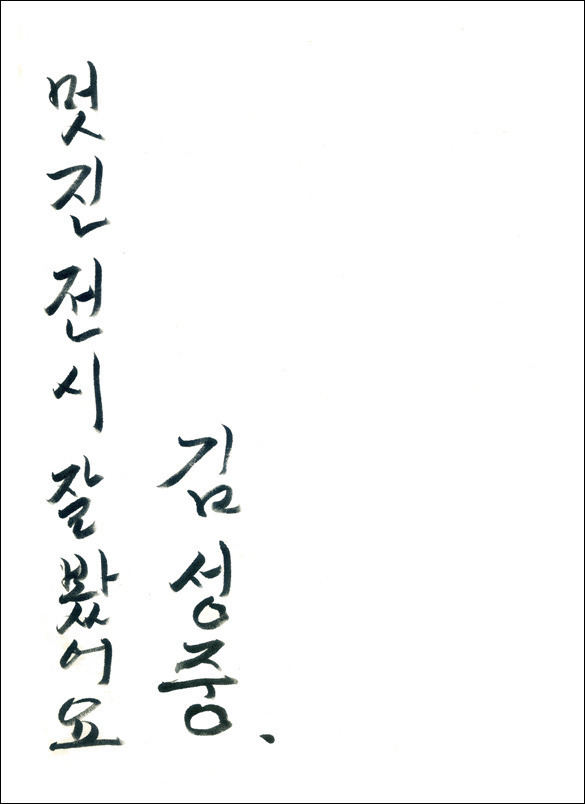 멋진 전시 잘 봤어요
김성중.